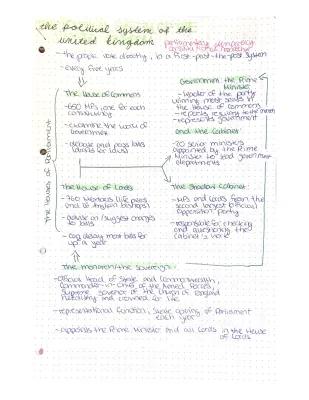 the political system of the
united kingdom
parliamentary democracy
constitutional monarchy
- the people vote directly, in a First-past-the-post system
- every five years
The Houses of Parliament
The House of Commons
- 650 MPs, one for each
constituency
- examine the work of
government
- debate and pass bills
Government: the Prime
Minister
- leader of the party
winning most seats in
the House of Commons
- represents government
and the Cabinet
- 20 senior ministers
appointed by the Prime
Minister to lead government
departments
The House of Lords
- 760 members life peers
- advise on / suggest changes
to bills
- can delay most bills for
up to a year
The Shadow Cabinet
- MPs and Lords from the
second largest (official)
opposition party
- responsible for checking
and questioning the
Cabinet's work
The monarch/the sovereign
- Official Head of State and Commonwealth,
Commander-in-Chief of the Armed Forces,
Supreme Governor of the Church of England
hereditary and crowned for life
- representational function, State opening of Parliament
each year
- appoints the Prime Minister and all Lords in the House
of Lords